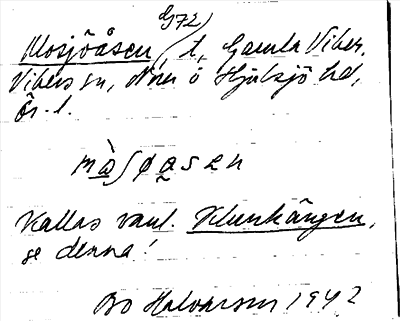 G72)
Mosjöåsen, t, Gamla Viker,
Vikers sn, Nora o Hjulsjö hd,
Ör. l.
Kallas vanl. Klunkängen,
se denna!
Bo Halvarson 1942